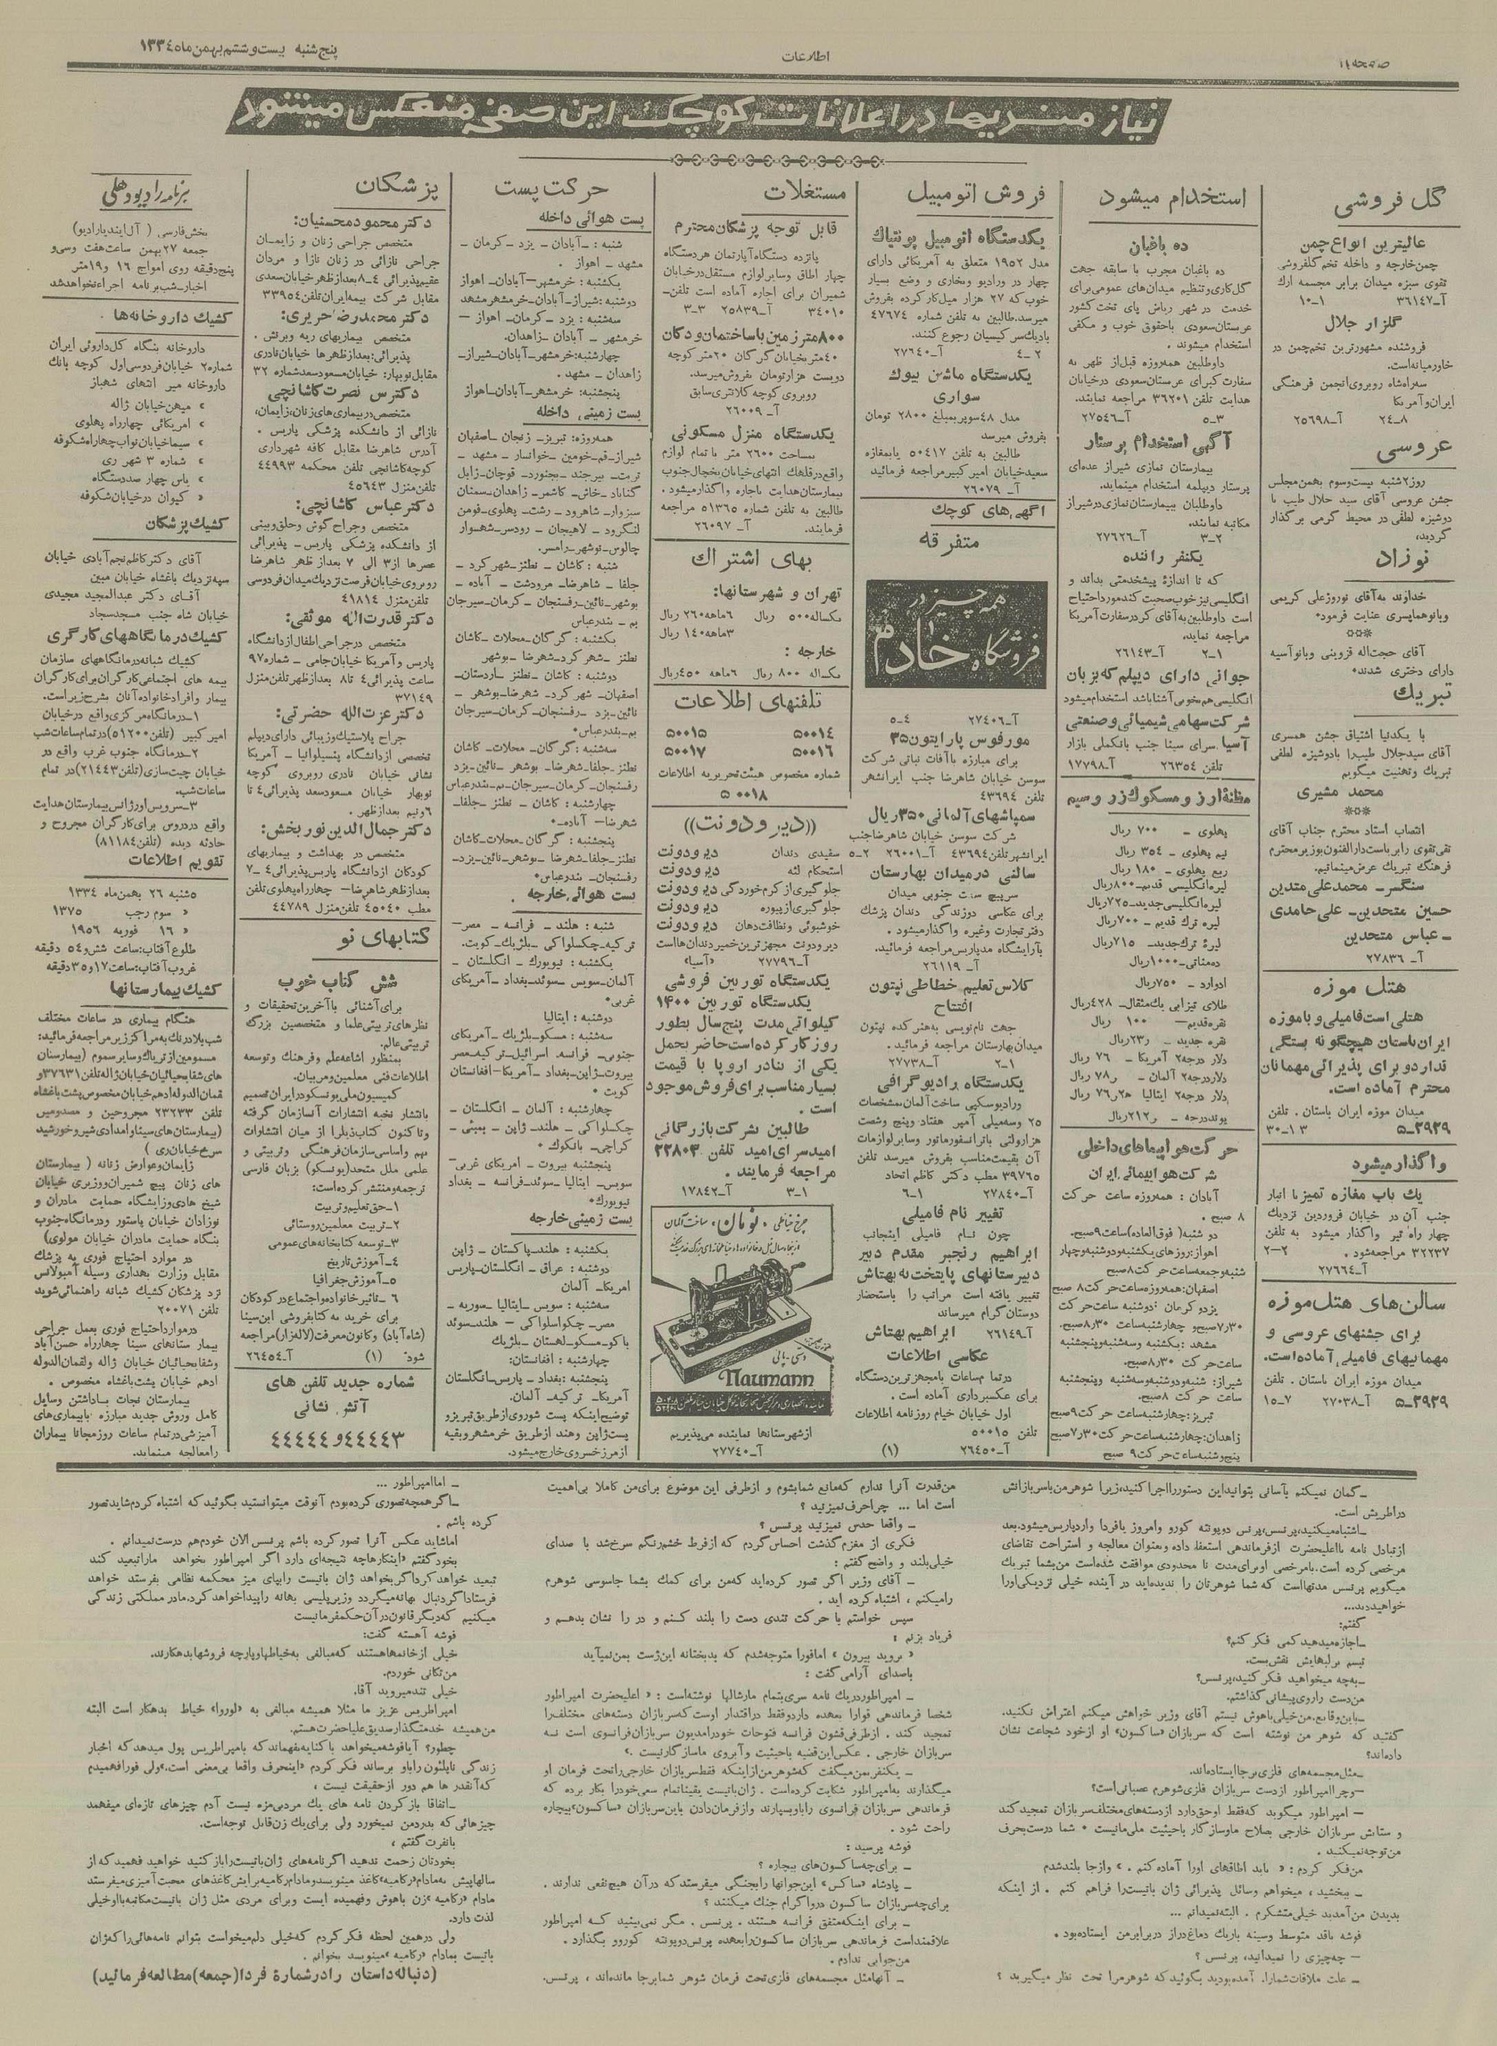 صفحه ۱۴
اطلاعات
پنج شنبه بیست و ششم بهمن ماه ۱۳۳٤
نیازمندیها در اعلانات کوچک این صفحه منعکس میشود
گل فروشی
عالیترین انواع چمن
چمن خارجه و داخله تخم گلفروشی
تقوی سبزه میدان برابر مجسمه ارك
آ-۳۶۱۴۷ ۱-۱۰
گلزار جلال
فروشنده مشهورترین تخم چمن در
خاورمیانه است.
سه راه شاه روبروی انجمن فرهنگی
ایران و آمریکا
۸-۲٤ آ-۲۵۶۹۸
عروسی
روز ۲ شنبه بیست و سوم بهمن مجلس
جشن عروسی آقای سید جلال طیب با
دوشیزه لطفی در محیط گرمی برگذار
گردید.
نوزاد
خداوند به آقای نوروز علی کریمی
و بانو همایسری عنایت فرمود.
آقای حجت اله قزوینی و بانو آسیه
دارای دختری شدند.
تبریك
با یکدنیا اشتیاق جشن همسری
آقای سید جلال طیب را با دوشیزه لطفی
تبریك و تهنیت میگویم
محمد مشیری
انتصاب استاد محترم جناب آقای
تقی تقوی را بریاست دارالفنون بوزیر محترم
فرهنگ تبریك عرض مینمائیم.
سنگسر - محمد علی متدین
حسین متحدین - علی حامدی
- عباس متحدین
آ- ۲۷۸۳۶
هتل موزه
هتلی است فامیلی و با موزه
ایران باستان هیچگونه بستگی
ندارد و برای پذیرائی مهمانان
محترم آماده است.
میدان موزه ایران باستان . تلفن
۵-۲۹۲۹ ۱۳-۳۰
واگذار میشود
یك باب مغازه تمیز با انبار
جنب آن در خیابان فروردین نزدیك
چهار راه تیر واگذار میشود به تلفن
۳۲۲۳۷ مراجعه شود . ۲-۲
آ-۲۷۶۶۴
سالن های هتل موزه
برای جشنهای عروسی و
مهمانیهای فامیلی آماده است.
میدان موزه ایران باستان . تلفن
۵-۲۹۲۹ آ-۲۷۰۳۸ ۷-۱۵
استخدام میشود
ده باغبان
ده باغبان مجرب با سابقه جهت
گل کاری و تنظیم میدان های عمومی برای
خدمت در شهر ریاض پای تخت کشور
عربستان سعودی با حقوق خوب و مکفی
استخدام میشوند .
داوطلبین همه روزه قبل از ظهر به
سفارت کبرای عربستان سعودی در خیابان
هدایت تلفن ۳۶۲۰۱ مراجعه نمایند.
۳-۵ آ-۲۷۵٤۶
آگهی استخدام پرستار
بیمارستان نمازی شیراز عده ای
پرستار دیپلمه استخدام مینماید.
داوطلبان به بیمارستان نمازی در شیراز
مکاتبه نمایند.
۲-۳ آ-۲۷۶۲۶
یکنفر راننده
که تا اندازهٔ پیشخدمتی بداند و
انگلیسی نیز خوب صحبت کند مورد احتیاج
است داوطلبین به آقای کرد رسفارت آمریکا
مراجعه نماید.
۱-۲ آ-۲۶۱۴۳
جوانی دارای دیپلم که بزبان
انگلیسی هم خوبی آشنا باشد استخدام میشود
شرکت سهامی شیمیائی و صنعتی
آسیا . سرای سینا جنب بانک ملی بازار
تلفن ۲۶۳۵٤ آ-۱۷۷۹۸
مظنهٔ ارز و مسکوك زر و سیم
پهلوی - ۷۰۰ ریال
نیم پهلوی - ۳۵۴ ریال
ربع پهلوی - ۱۸۰ ریال
لیره انگلیسی قدیم - ۸۰۰ ریال
لیره انگلیسی جدید - ۷۲۵ ریال
لیره ترك قدیم - ۷۰۰ ریال
لیرهٔ ترك جدید - ۷۱۵ ریال
ده مناتی - ۱۰۰۰ ریال
ادوارد - ۷۵۰ ریال
طلای تیزابی یك مثقال - ٤۲۸ ریال
نقره قدیم - ۱۰۰ ریال
نقره جدید - ر۲۳ ریال
دلار درجه ۲ آمریکا - ۷۶ ریال
دلار درجه ۲ آلمان - ر۷۸ ریال
پوند درجه - ر۲۱۲ ریال
حرکت هواپیماهای داخلی
شرکت هواپیمائی ایران
آبادان : همه روزه ساعت حرکت
۸ صبح .
دو شنبه ( فوق العاده) ساعت ۹ صبح.
اهواز: روزهای یکشنبه و دوشنبه و چهار
شنبه و جمعه ساعت حرکت ۸ صبح
اصفهان: همه روزه ساعت حرکت ۸ صبح
یزد و کرمان : دوشنبه ساعت حرکت
۷٫۳۰ صبح و چهارشنبه ساعت ۸٫۳۰ صبح.
مشهد : یکشنبه و سه شنبه و پنجشنبه
ساعت حرکت ۸٫۳۰ صبح.
شیراز: شنبه و دوشنبه و سه شنبه و پنجشنبه
ساعت حرکت ۸ صبح.
تبریز: چهارشنبه ساعت حرکت ۹ صبح
زاهدان: چهارشنبه ساعت حرکت ۷٫۳۰ صبح
پنج شنبه ساعت حرکت ۹ صبح
فروش اتومبیل
یکدستگاه اتومبیل پونتیاك
مدل ۱۹۵۲ متعلق به آمریکائی دارای
چهار در و رادیو و بخاری و وضع بسیار
خوب که ۲۷ هزار میل کار کرده بفروش
میرسد. طالبین به تلفن شماره ٤۷۶۷٤
بادیك سر کیسیان رجوع کنند.
۲-٤ آ-۲۷۶٤۰
یکدستگاه ماشین بیوك
سواری
مدل ٤۸ سوپر بمبلغ ۲۸۰۰ تومان
بفروش میرسد
طالبین به تلفن ۵۰٤۱۷ یا بمغازه
سعید خیابان امیر کبیر مراجعه فرمائید
آ-۲۶۰۷۹
آگهی های کوچك
متفرقه
همه چیز در
فروشگاه خادم
آ-۲۷٤۰۶ ٤-۵
مورفوس پارایتون ۳۵
برای مبارزه با آفات نباتی شرکت
سوسن خیابان شاهرضا جنب ایرانشهر
تلفن ٤۳۶۹٤
سمپاشهای آلمانی ۳۵۰ ریال
شرکت سوسن خیابان شاهرضا جنب
ایرانشهر تلفن ٤۳۶۹٤ آ-۲۶۰۰۱ ۲-۵
سالنی در میدان بهارستان
سرپیچ سمت جنوبی میدان
برای عکاسی دوزندگی دندان پزشك
دفتر تجارت و غیره واگذار میشود .
با آرایشگاه مد پاریس مراجعه فرمائید.
آ-۲۶۱۱۹
کلاس تعلیم خطاطی نپتون
افتتاح
جهت نام نویسی به هنر کده نپتون
میدان بهارستان مراجعه فرمائید .
۱-۲ آ-۲۷۷۳۸
یکدستگاه رادیوگرافی
و رادیوسکپی ساخت آلمان، مشخصات
۲۵ و سه میلی آمپر هفتاد و پنج و شصت
هزار ولتی با ترانسفورماتور و سایر لوازمات
آن بقیمت مناسب بفروش میرسد تلفن
۳۹۷۶۵ مطب دکتر کاظم اتحاد
آ-۲۷۸٤۰ ۱-۶
تغییر نام فامیلی
چون نام فامیلی اینجانب
ابراهیم رنجبر مقدم دبیر
دبیرستانهای پایتخت به بهتاش
تغییر یافته است مراتب را باستحضار
دوستان گرام میرساند
آ-۲۶۱٤۹ ابراهیم بهتاش
عکاسی اطلاعات
در تمام ساعات با مجهزترین دستگاه
برای عکسبرداری آماده است .
اول خیابان خیام روزنامه اطلاعات
تلفن ۵۰۰۱۵
آ-۲۶٤۵۰ (۱)
مستغلات
قابل توجه پزشکان محترم
پانزده دستگاه آپارتمان هر دستگاه
چهار اطاق و سایر لوازم مستقل در خیابان
شمیران برای اجاره آماده است تلفن-
۳٤۰۱۰ آ-۲۵۸۳۹ ۳-۳
۸۰۰ متر زمین با ساختمان و دکان
٤۰ متر خیابان گرگان ۲۰ متر کوچه
دویست هزار تومان بفروش میرسد.
روبروی کوچه کلانتری سابق
آ-۲۶۰۰۹
یکدستگاه منزل مسکونی
بمساحت ۲۶۰۰ متر با تمام لوازم
واقع در قلهك انتهای خیابان یخچال جنوب
بیمارستان هدایت باجاره واگذار میشود.
طالبین به تلفن شماره ۵۱۳۶۵ مراجعه
فرمایند. آ-۲۶۰۹۷
بهای اشتراك
تهران و شهرستانها:
یکساله ۵۰۰ ریال ۶ ماهه ۲۶۰ ریال
۳ ماهه ۱٤۰ ریال
خارجه :
یکساله ۸۰۰ ریال ۶ ماهه ٤۵۰ ریال
تلفنهای اطلاعات
۵۰۰۱٤ ۵۰۰۱۵
۵۰۰۱۶ ۵۰۰۱۷
شماره مخصوص هیئت تحریریه اطلاعات
۵۰۰۱۸
((دیرودونت))
سفیدی دندان دیرودونت
استحکام لثه دیرودونت
جلوگیری از کرم خوردگی دیرودونت
جلوگیری از پیوره دیرودونت
خوشبوئی و نظافت دهان دیرودونت
دیرودونت مجهزترین خمیر دندانها است
آ-۲۷۷۹۶ «آسیا»
یکدستگاه توربین فروشی
یکدستگاه توربین ۱۴۰۰
کیلواتی مدت پنج سال بطور
روز کار کرده است حاضر بحمل
یکی از بنادر اروپا با قیمت
بسیار مناسب برای فروش موجود
است .
طالبین بشرکت بازرگانی
امید سرای امید تلفن ۲۲۸۰۳
مراجعه فرمایند .
۱-۳ آ-۱۷۸٤۲
چرخ خیاطی، نومان، ساخت آلمان
دستی - پائی
Naumann
از شهرستانها نماینده می پذیریم
آ-۲۷۷٤۰
حرکت پست
پست هوائی داخله
شنبه : - آبادان - یزد - کرمان -
مشهد - اهواز .
یکشنبه : خرمشهر - آبادان - اهواز
دوشنبه : شیراز - آبادان - خرمشهر مشهد
سه شنبه : یزد - کرمان - اهواز -
خرمشهر - آبادان - زاهدان.
چهارشنبه: خرمشهر - آبادان - شیراز -
زاهدان - مشهد .
پنجشنبه: خرمشهر - آبادان - اهواز
پست زمینی داخله
همه روزه: تبریز - زنجان - اصفهان
شیراز - قم - خومین - خوانسار - مشهد -
تربت - بیرجند - بجنورد - قوچان - زابل
گناباد - خاش - کاشمر - زاهدان - سمنان
سبزوار - شاهرود - رشت - پهلوی - فومن
لنگرود - لاهیجان - رودسر - شهسوار
چالوس - نوشهر - رامسر.
شنبه : کاشان - نطنز - شهر کرد -
جلفا - شاهرضا - مرودشت - آباده -
بوشهر - نائین - رفسنجان - کرمان - سیرجان
بم - بندر عباس
یکشنبه : گرگان - محلات - کاشان
نطنز - شهر کرد - شهرضا - بوشهر
دوشنبه : کاشان - نطنز - اردستان -
اصفهان - شهر کرد - شهرضا - بوشهر -
نائین - یزد - رفسنجان - کرمان - سیرجان
بم - بندرعباس.
سه شنبه : گرگان - محلات - کاشان
نطنز - جلفا - شهرضا - بوشهر - نائین - یزد
رفسنجان - کرمان - سیرجان - بم - بندر عباس
چهارشنبه : کاشان - نطنز - جلفا -
شهرضا - آباده.
پنجشنبه : گرگان - محلات - کاشان
نطنز - جلفا - شهرضا - بوشهر - نائین - یزد -
رفسنجان - بندر عباس.
پست هوائی خارجه .
شنبه : هلند - فرانسه - مصر -
ترکیه - چکسلواکی - بلژیك - کویت.
یکشنبه : نیویورك - انگلستان -
آلمان - سویس - سوئد - بغداد - آمریکای
غربی.
دوشنبه : ایتالیا
سه شنبه : مسکو - بلژیك - آمریکای
جنوبی - فرانسه - اسرائیل - ترکیه - مصر
بیروت - ژاپن - بغداد - آمریکا - افغانستان
کویت .
چهارشنبه : آلمان - انگلستان -
چکسلواکی - هلند - ژاپن - بمبئی -
کراچی - بانکوك .
پنجشنبه بیروت - امریکای غربی -
سویس - ایتالیا - سوئد - فرانسه - بغداد
نیویورك.
پست زمینی خارجه
یکشنبه : هلند - پاکستان - ژاپن
دوشنبه : عراق - انگلستان - پاریس
امریکا - آلمان
سه شنبه : سویس - ایتالیا - سوریه -
مصر - چکواسلواکی - هلند - سوئد
باکو - مسکو - لهستان - بلژیك
چهارشنبه : افغانستان:
پنجشنبه : بغداد - پارس - انگلستان
آمریکا - ترکیه - آلمان.
توضیح اینکه پست شوروی از طریق تبریز و
پست ژاپن و هند از طریق خرمشهر و بقیه
از مرز خسروی خارج میشود.
پزشکان
دکتر محمود محسنیان:
متخصص جراحی زنان و زایمان
جراحی نازائی در زنان نازا و مردان
عقیم پذیرائی ٤-۸ بعد از ظهر خیابان سعدی
مقابل شرکت بیمه ایران تلفن ۳۳۹۵٤
دکتر محمد رضا حریری:
متخصص بیماریهای ریه و برنش .
پذیرائی: بعد از ظهرها خیابان نادری
مقابل نوبهار: خیابان مسعود سعد شماره ۳۲
دکتر س نصرت کاشانچی
متخصص در بیماری های زنان، زایمان،
نازائی از دانشکده پزشکی پاریس .
آدرس شاهرضا مقابل کافه شهرداری
کوچه کاشانچی تلفن محکمه ٤٤۹۹۳
تلفن منزل ٤۵۶٤۳
دکتر عباس کاشانچی:
متخصص و جراح گوش و حلق و بینی
از دانشکده پزشکی پاریس - پذیرائی
عصرها از ۳ الی ۷ بعد از ظهر شاهرضا
روبروی خیابان فرصت نزدیك میدان فردوسی
تلفن منزل ٤۱۸۱٤
دکتر قدرت اله موثقی:
متخصص در جراحی اطفال از دانشگاه
پاریس و آمریکا خیابان جامی - شماره ۹۷
ساعت پذیرائی ٤ تا ۸ بعد از ظهر تلفن منزل
۳۷۱٤۹
دکتر عزت الله حضرتی:
جراح پلاستیك و زیبائی دارای دیپلم
تخصصی از دانشگاه پنسیلوانیا - آمریکا
نشانی خیابان نادری روبروی کوچه
نوبهار خیابان مسعود سعد پذیرائی ٤ تا
۶ و نیم بعد از ظهر.
دکتر جمال الدین نوربخش:
متخصص در بهداشت و بیماریهای
کودکان از دانشگاه پاریس پذیرائی ٤-۷
بعد از ظهر شاهرضا - چهارراه پهلوی تلفن
مطب ٤۵۰٤۰ تلفن منزل ٤٤۷۸۹
کتابهای نو
شش کتاب خوب
برای آشنائی با آخرین تحقیقات و
نظرهای تربیتی علما و متخصصین بزرگ
تربیتی عالم.
بمنظور اشاعه علم و فرهنگ و توسعه
اطلاعات فنی معلمین و مربیان.
کمیسیون ملی یونسکو در ایران تصمیم
بانتشار نخبه انتشارات آنسازمان گرفته
و تاکنون کتاب ذیل را از میان انتشارات
مهم و اساسی سازمان فرهنگی و تربیتی و
علمی ملل متحد (یونسکو) بزبان فارسی
ترجمه و منتشر کرده است:
۱- حق تعلیم و تربیت
۲- تربیت معلمین روستائی
۳- توسعه کتابخانه های عمومی
٤- آموزش تاریخ
۵- آموزش جغرافیا
۶ - تاثیر خانواده و اجتماع در کودکان
برای خرید به کتابفروشی ابن سینا
(شاه آباد) و کانون معرفت (لاله زار) مراجعه
شود. (۱) آ-۲۶٤۵٤
شماره جدید تلفن های
آتش نشانی
٤٤٤٤۳ و ٤٤٤٤٤
برنامه رادیو دهلی
بخش فارسی ( آل ایندیا رادیو)
جمعه ۲۷ بهمن ساعت هفت و سی و
پنج دقیقه روی امواج ۱۶ و ۱۹ متر
اخبار - شب برنامه اجراء نخواهد شد
کشیك داروخانه ها .
داروخانه بنگاه کل داروئی ایران
شماره ۲ خیابان فردوسی اول کوچه بانك
داروخانه میر انتهای شهباز
» میهن خیابان ژاله
» امریکائی چهار راه پهلوی
» سینما خیابان نواب چهار راه شکوفه
» شماره ۳ شهر ری
» یاس چهار صد دستگاه
» کیوان در خیابان شکوفه
کشیك پزشکان
آقای دکتر کاظم نجم آبادی خیابان
سپه نزدیك باغشاه خیابان مبین
آقای دکتر عبدالمجید مجیدی
خیابان شاه جنب مسجد سجاد
کشیك درمانگاههای کارگری
کشیك شبانه درمانگاههای سازمان
بیمه های اجتماعی کارگران برای کارگران
بیمار و افراد خانواده آنان بشرح زیر است.
۱- درمانگاه مرکزی واقع در خیابان
امیر کبیر (تلفن ۵۱۲۰۰) در تمام ساعات شب
۲- درمانگاه جنوب غرب واقع در
خیابان چیت سازی (تلفن ۲۱٤٤۳) در تمام
ساعات شب.
۳- سرویس اورژانس بیمارستان هدایت
واقع در دروس برای کارگران مجروح و
حادثه دیده (تلفن ۸۱۱۸٤)
تقویم اطلاعات
۵ شنبه ۲۶ بهمن ماه ۱۳۳٤
» سوم رجب ۱۳۷۵
» ۱۶ فوریه ۱۹۵۶
طلوع آفتاب: ساعت شش و ۵٤ دقیقه
غروب آفتاب: ساعت ۱۷ و ۳۵ دقیقه
کشیك بیمارستانها
هنگام بیماری در ساعات مختلف
شب بلادرنگ به مراکز زیر مراجعه فرمائید:
مسمومین از تریاك و سایر سموم (بیمارستان
های شفا یحیائیان خیابان ژاله تلفن ۳۷۶۳۱ و
لقمان الدوله ادهم خیابان مخصوص پشت باغشاه
تلفن ۲۳۲۳۳ مجروحین و مصدومین
(بیمارستان های سینا و امدادی شیر و خورشید
سرخ خیابان ری )
زایمان و عوارض زنانه ( بیمارستان
های زنان پیچ شمیران و وزیری خیابان
شیخ هادی و زایشگاه حمایت مادران و
نوزادان خیابان پاستور و درمانگاه جنوب
بنگاه حمایت مادران خیابان مولوی)
در موارد احتیاج فوری به پزشك
مقابل وزارت بهداری وسیله آمبولانس
نزد پزشکان کشیك شبانه راهنمائی شوید
تلفن ۲۰۰۷۱
در موارد احتیاج فوری بعمل جراحی
بیمارستانهای سینا چهارراه حسن آباد
و شفا یحیائیان خیابان ژاله و لقمان الدوله
ادهم خیابان پشت باغشاه مخصوص .
بیمارستان نجات با داشتن وسایل
کامل و روش جدید مبارزه با بیماری های
آمیزشی در تمام ساعات روز مجانا بیماران
را معالجه مینماید.
- گمان نمیکنم بآسانی بتوانید این دستور را اجرا کنید، زیرا شوهر من با سربازانش
در اطریش است.
- اشتباه میکنید، پرنسس، پرنس دو پونته کورو و امروز یا فردا وارد پاریس میشود. بعد
از تبادل نامه با اعلیحضرت از فرماندهی استعفا داده و بعنوان معالجه و استراحت تقاضای
مرخصی کرده است. با مرخصی او برای مدت نا محدودی موافقت شده است من بشما تبریك
میگویم پرنسس مدتها است که شما شوهرتان را ندیده اید در آینده خیلی نزدیکی او را
خواهید دید...
گفتم:
- اجازه میدهید کمی فکر کنم؟
تبسم بر لبهایش نقش بست.
- به چه میخواهید فکر کنید، پرنسس؟
من دست را روی پیشانی گذاشتم.
- باین وقایع. من خیلی باهوش نیستم آقای وزیر خواهش میکنم اعتراض نکنید.
گفتید که شوهر من نوشته است که سربازان «ساکسون» او از خود شجاعت نشان
داده اند؟
- مثل مجسمه های فلزی بر جا ایستاده اند.
- و چرا امپراطور از دست سربازان فلزی شوهرم عصبانی است؟
- امپراطور میگوید که فقط او حق دارد از دسته های مختلف سربازان تمجید کند
و ستایش سربازان خارجی بصلاح ما و سازگار با حیثیت ملی ما نیست . شما درست بحرف
من توجه نمیکنید .
من فکر کردم : « باید اطاقهای او را آماده کنم . » و از جا بلند شدم
- ببخشید ، میخواهم وسائل پذیرائی ژان باتیست را فراهم کنم . از اینکه
بدیدن من آمدید خیلی متشکرم . البته نمیدانم ...
فوشه با قد متوسط و سینه باریك دماغ دراز در برابر من ایستاده بود .
- چه چیزی را نمیدانید، پرنسس ؟
- علت ملاقات شما را. آمده بودید بگوئید که شوهر مرا تحت نظر میگیرید ؟
من قدرت آنرا ندارم که مانع شما بشوم و از طرفی این موضوع برای من کاملا بی اهمیت
است اما ... چرا حرف نمیزنید ؟
- واقعا حدس نمیزنید پرنسس ؟
فکری از مغزم گذشت احساس کردم که از فرط خشم رنگم سرخ شد با صدای
خیلی بلند و واضح گفتم :
- آقای وزیر اگر تصور کرده اید که من برای کمك بشما جاسوسی شوهرم
را میکنم ، اشتباه کرده اید .
سپس خواستم با حرکت تندی دست را بلند کنم و در را نشان بدهم و
فریاد بزنم :
« بروید بیرون » اما فورا متوجه شدم که بدبختانه این ژست بمن نمیآید
با صدای آرامی گفت :
- امپراطور در یك نامه سری بتمام مارشالها نوشته است : « اعلیحضرت امپراطور
شخصا فرماندهی قوا را بعهده دارد و فقط در اقتدار اوست که سربازان دسته های مختلف را
تمجید کند . از طرفی قشون فرانسه فتوحات خود را مدیون سربازان فرانسوی است نه
سربازان خارجی . عکس این قضیه با حیثیت و آبروی ما سازگار نیست . »
- یکنفر بمن میگفت که شوهر من از اینکه فقط سربازان خارجی را تحت فرمان او
میگذارند به امپراطور شکایت کرده است . ژان باتیست یقینا تمام سعی خود را بکار برده که
فرماندهی سربازان فرانسوی را باو بسپارند و از فرمان دادن باین سربازان «ساکسون» بیچاره
راحت شود .
فوشه پرسید :
- برای چه ساکسون های بیچاره ؟
- پادشاه «ساکس» این جوانها را بجنگی میفرستد که در آن هیچ نفعی ندارند .
برای چه سربازان ساکسون در واگرام جنك میکنند ؟
- برای اینکه متفق فرانسه هستند . پرنسس . مگر نمی بینید که امپراطور
علاقمند است فرماندهی سربازان ساکسون را بعهده پرنس دو پونته کورو بگذارد .
من جوابی ندادم .
- آنها مثل مجسمه های فلزی تحت فرمان شوهر شما بر جا مانده اند ، پرنسس.
- اما امپراطور ...
- اگر همچه تصوری کرده بودم آنوقت میتوانستید بگوئید که اشتباه کردم شاید تصور
کرده باشم .
اما شاید عکس آنرا تصور کرده باشم پرنسس الان خودم هم درست نمیدانم .
بخود گفتم « اینکار ها چه نتیجه ای دارد اگر امپراطور بخواهد ما را تبعید کند
تبعید خواهد کرد اگر بخواهد ژان باتیست را بپای میز محکمه نظامی بفرستد خواهد
فرستاد اگر دنبال بهانه میگردد وزیر پلیسی بهانه را پیدا خواهد کرد. ما در مملکتی زندگی
میکنیم که دیگر قانون در آن حکمفرما نیست
فوشه آهسته گفت:
خیلی از خانم ها هستند که مبالغی به خیاط ها و پارچه فروشها بدهکارند.
من تکانی خوردم.
خیلی تند میروید آقا.
امپراطریس عزیز ما مثلا همیشه مبالغی به «لوروا» خیاط بدهکار است البته
من همیشه خدمتگذار صدیق علیا حضرت هستم.
چطور؟ آیا فوشه میخواهد با کنایه بفهماند که بامپراطریس پول میدهد که اخبار
زندگی ناپلئون را باو برساند فکر کردم «اینحرف واقعا بی معنی است.» ولی فورا فهمیدم
که آنقدر ها هم دور از حقیقت نیست ،
- اتفاقا باز کردن نامه های یك مرد بی مزه نیست آدم چیزهای تازه ای میفهمد
چیزهائی که بدرد من نمیخورد ولی برای یك زن قابل توجه است.
با نفرت گفتم ،
بخودتان زحمت ندهید اگر نامه های ژان باتیست را باز کنید خواهید فهمید که از
سالها پیش به مادام «رکامیه» کاغذ مینویسد و مادام رکامیه برایش کاغذهای محبت آمیزی میفرستد
مادام «رکامیه» زن باهوش و فهمیده ایست و برای مردی مثل ژان باتیست مکاتبه با او خیلی
لذت دارد.
ولی در همین لحظه فکر کردم که خیلی دلم میخواست بتوانم نامه هائی را که ژان
باتیست بمادام «رکامیه» مینویسد بخوانم .
(دنباله داستان را در شمارهٔ فردا (جمعه) مطالعه فرمائید)